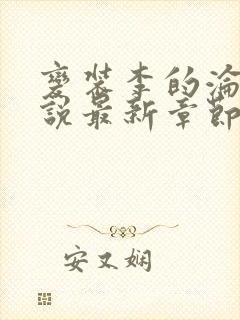 变装李的沦
说最新章節
安又娴